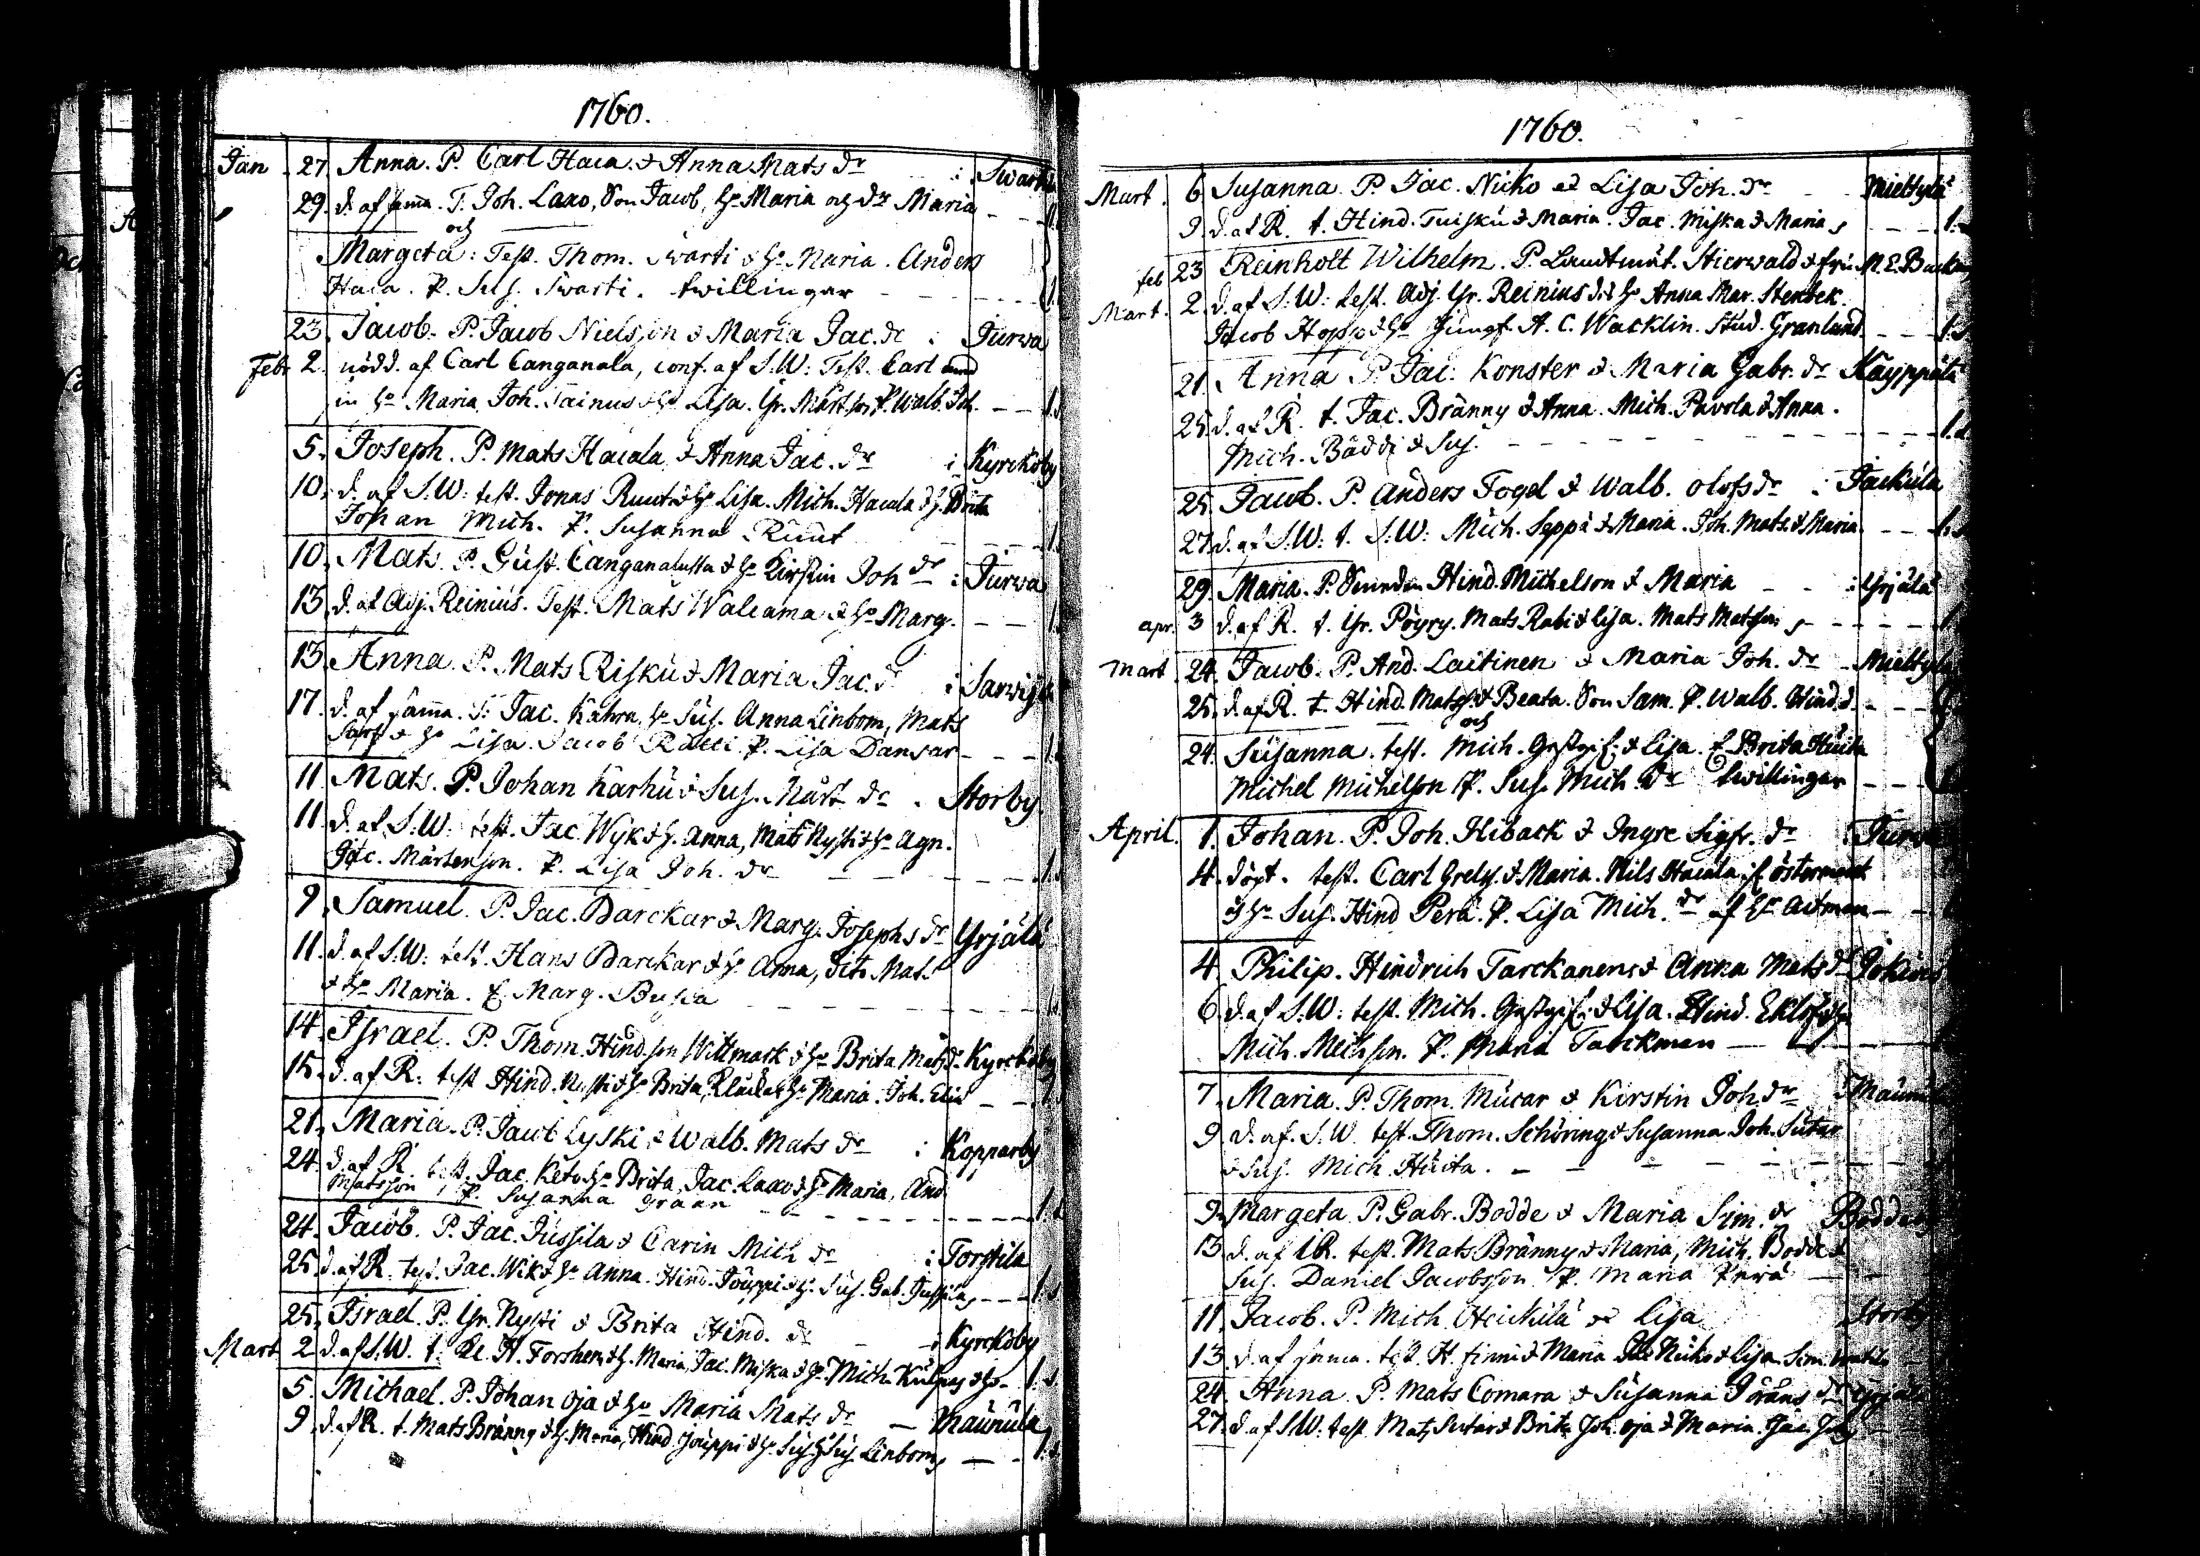 1760.
Jan 27. Anna. P. Carl Haca & Anna Mats dr : Swart
29. d. af samma. T. Joh. Laxo, Son Jacob, hu Maria och dr Maria
och
Margeta: Test. Thom. Swarti & hu Maria. Anders
Haca. P. Sus. Swarti. twillingar
23. Jacob. P. Jacob Nielsson & Maria Jac. dr : Turwa
Febr 2. nödd. af Carl Canganala, conf. af S.W: Test. Carl
hu Maria Joh. Tainus & hu Lisa. P. Walb. Joh.
5. Joseph. P. Mats Hacala & Anna Jac. dr i Kyrckoby
10. d. af S.W: test. Jonas Ruut & hu Lisa. Mich. Hacala & h. Brita
Johan Mich. P. Susanna Ruut
10. Mats. P. Gust. Canganalutta & hu Kirstin Joh dr : Turwa
13. d. af Adj. Reinius. Test. Mats Waleama & hu Marg.
13. Anna. P. Mats Risku & Maria Jac. d. i Sarwi
17. d. af samma. T: Jac. Kahra, hu Sus. Anna Linbom, Mats
& hu Lisa. Jacob P. Lisa Dansar
11. Mats. P. Johan Karhu & Sus. Mårt dr . Storby
11. d. af S.W: test. Jac. Wyk & h. Anna, Mats Nysti & hu Agn.
Jac. Mårtenson. P. Lisa Joh. dr
9. Samuel. P. Jac. Barckar & Marg. Josephs dr Yrjälä
11. d. af S.W: test. Hans Barckar & h. Anna, Mat.
& hu Maria. P. Marg.
14. Israel. P. Thom. Hind.son Wittmack & hu Brita Mats d. Kyrckoby
15. d. af R: test Hind. Nysti & hu Brita, hu Maria. Joh.
21. Maria. P. Jacob Lyski & Walb. Mats dr : Kopparby
24. d. af R test. Jac. Keto & hu Brita, Jac. Laxo & hu Maria, And.
Matsson, P. Susanna Graan
24. Jacob. P. Jac. Jussila & Carin Mich dr : Torstila
25. d. af R. test. Jac. Wik & hu Anna. Hind. Jouppi & h. Sus. Gab. Jussila,
25. Israel. P. Gr. Nysti & Brita Hind. dr : Kyrckoby
Mart 2. d. af S.W. t. H. Forshem & h. Maria, Jac. Miska & hu Mich.
5. Michael. P. Johan Oja & hu Maria Mats dr — Maunula
9. d. af R. t. Mats Bränny & h. Maria, Hind. Jouppi & hu Sus. Sus. Linbom,
1760.
Mart. 6. Susanna. P. Jac. Nicko et Lisa Joh. dr Miettylä
9. d. af R. t. Hind. Tuisku & Maria. Jac. Miska & Maria,
feb 23. Reinholt Wilhelm. P. Landtmät. Stierwald & fru M. E. Back
Mart. 2. d. af S.W: test. Adj. Gr. Reinius & hu Anna Mar. Stenbek.
Jacob Jungf. A. C. Wacklin. Stud. Granlund.
21. Anna P. Jac. Konster & Maria Gabr. dr Käyppälä
25. d. af R. t. Jac. Bränny & Anna. Mich. Pavola & Anna.
Mich. Bäddi & Sus.
25. Jacob. P. Anders Fogel & Walb. Olofs dr : Jackula
27. d. af S.W: t. S.W: Mich. Seppä & Maria. Joh. Mats. & Maria
29. Maria. P. Hind. Michelson & Maria : Yrjälä
apr. 3. d. af R. t. Gr. Pöyry. Mats Rabi & Lisa. Mats Matsson,
Mart 24. Jacob. P. And. Laitinen & Maria Joh. dr Miettylä
25. d. af R. t. Hind. Mats. & Beata. Son Sam. P. Walb. Hind. d.
och
24. Susanna. test. Mich. Gästgif. & Lisa. & Brita
Michel Michelson P. Sus. Mich. dr twillingar
April. 1. Johan. P. Joh. Hiback & Ingre Sigfr. dr : Turwa
4. döpt. test. Carl Grels. & Maria. Nils Hacala, f. Östermarck
& hu Sus. Hind Perä. P. Lisa Mich. dr af hr Aitman
4. Philip. Hindrich Tarckanen & Anna Mats dr Jokinä
6. d. af S.W: test. Mich. Gästgif. & Lisa. Hind. Eklöf & hu
Mich. Michson. P. Maria Tarckman
7. Maria. P. Thom. Mucar & Kirstin Joh. dr : Maunu
9. d. af. S.W. test. Thom. Schöring & Susanna Joh. Sutar
& Sus. Mich. Huita.
9. Margeta. P. Gabr. Bodde & Maria Sim. dr Boddeb
13. d. af R. test. Mats Bränny & Maria, Mich. Bodde &
Sus. Daniel Jacobsson P. Maria Perä
11. Jacob. P. Mich Heickilä & Lisa Storby
13. d. af samma. test. H. Finni & Maria Nicko & Lisa. Sim.
24. Anna. P. Mats Comara & Susanna Jöräns dr Yrjälä
27. d. af S.W: test. Mats Sutar & Brita Joh. Oja & Maria. Jac.